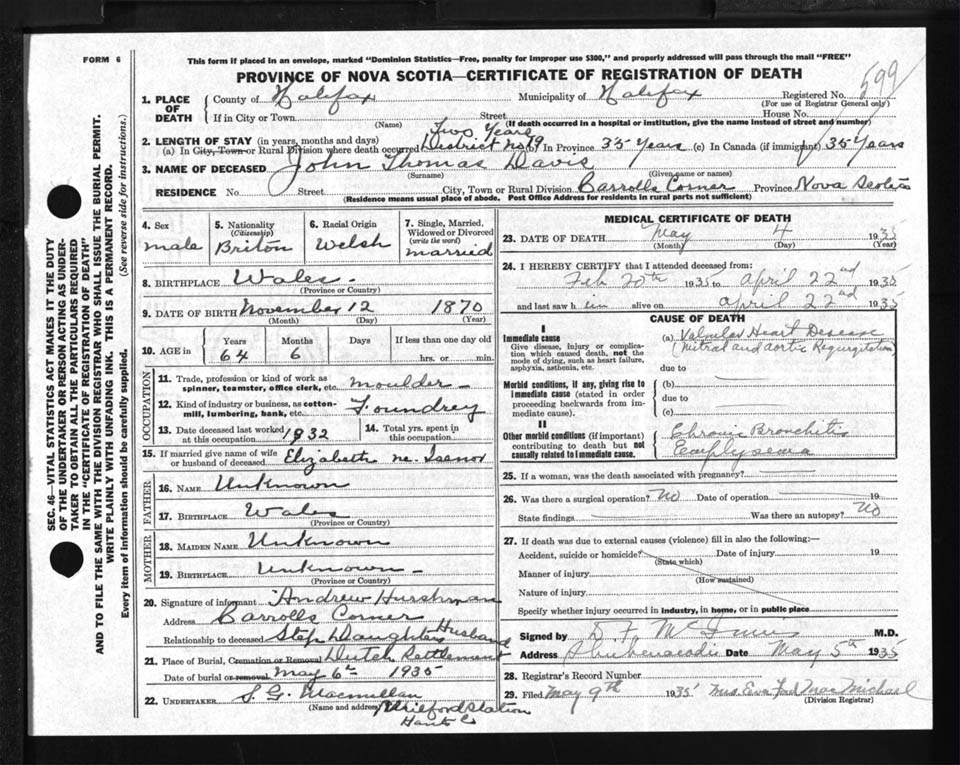 FORM 6
This form if placed in an envelope, marked "Dominion Statistics—Free, penalty for improper use $300," and properly addressed will pass through the mail "FREE"
PROVINCE OF NOVA SCOTIA—CERTIFICATE OF REGISTRATION OF DEATH
599
1. PLACE OF DEATH
County of Halifax Municipality of Halifax Registered No.
(For use of Registrar General only)
If in City or Town Street House No.
(Name) (If death occurred in a hospital or institution, give the name instead of street and number)
2. LENGTH OF STAY (in years, months and days) Two Years
(a) In City, Town or Rural Division where death occurred District no 19 (b) In Province 35 Years (c) In Canada (if immigrant) 35 Years
3. NAME OF DECEASED John Thomas Davis
(Surname) (Given name or names)
RESIDENCE No. Street City, Town or Rural Division Carrolls Corner Province Nova Scotia
(Residence means usual place of abode. Post Office Address for residents in rural parts not sufficient)
4. Sex
male
5. Nationality
(Citizenship)
Briton
6. Racial Origin
Welsh
7. Single, Married, Widowed or Divorced
(write the word)
married
8. BIRTHPLACE Wales
(Province or Country)
9. DATE OF BIRTH November 12 1870
(Month) (Day) (Year)
10. AGE in
Years Months Days If less than one day old
64 6 hrs. or min.
OCCUPATION
11. Trade, profession or kind of work as spinner, teamster, office clerk, etc. moulder
12. Kind of industry or business, as cotton-mill, lumbering, bank, etc. Foundrey
13. Date deceased last worked at this occupation 1932
14. Total yrs. spent in this occupation
15. If married give name of wife or husband of deceased Elizabeth ne. Isenor
FATHER
16. NAME Unknown
17. BIRTHPLACE Wales
(Province or Country)
MOTHER
18. MAIDEN NAME Unknown
19. BIRTHPLACE Unknown
(Province or Country)
20. Signature of informant Andrew Hurshman
Address Carrolls Corner
Relationship to deceased Step Daughters Husband
21. Place of Burial, Cremation or Removal Dutch Settlement
Date of burial or removal May 6th 1935
22. UNDERTAKER S. G. Macmillan
(Name and address) Milford Station
Hants Co
MEDICAL CERTIFICATE OF DEATH
23. DATE OF DEATH May 4 1935
(Month) (Day) (Year)
24. I HEREBY CERTIFY that I attended deceased from:
Feb 20th 1935 to April 22nd
and last saw him alive on April 22nd 1935
CAUSE OF DEATH
I
Immediate cause
Give disease, injury or complication which caused death, not the mode of dying, such as heart failure, asphyxia, asthenia, etc.
(a) Valvular Heart Desease
(Mitral and aortic Regurgitation)
due to
Morbid conditions, if any, giving rise to immediate cause (stated in order proceeding backwards from immediate cause).
(b)
due to
(c)
II
Other morbid conditions (if important) contributing to death but not causally related to immediate cause.
Chronic Bronchitis
Emphysema
25. If a woman, was the death associated with pregnancy?
26. Was there a surgical operation? No Date of operation 19
State findings Was there an autopsy? No
27. If death was due to external causes (violence) fill in also the following:—
Accident, suicide or homicide? Date of injury 19
(State which)
Manner of injury
(How sustained)
Nature of injury
Specify whether injury occurred in industry, in home, or in public place
Signed by D. F. McInnis M.D.
Address Shubenacadie Date May 5th 1935
28. Registrar's Record Number
29. Filed May 9th 1935 Mrs. Eva MacMichael
(Division Registrar)
SEC. 46—VITAL STATISTICS ACT MAKES IT THE DUTY
OF THE UNDERTAKER OR PERSON ACTING AS UNDER-
TAKER TO OBTAIN ALL THE PARTICULARS REQUIRED
IN THE "CERTIFICATE OF REGISTRATION OF DEATH"
AND TO FILE THE SAME WITH THE DIVISION REGISTRAR WHO SHALL ISSUE THE BURIAL PERMIT.
WRITE PLAINLY WITH UNFADING INK. THIS IS A PERMANENT RECORD.
Every item of information should be carefully supplied. (See reverse side for instructions.)